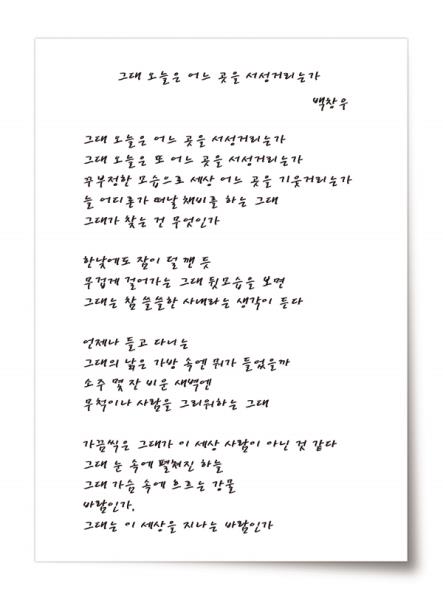 그대 오늘은 어느 곳을 서성거리는가
백창우
그대 오늘은 어느 곳을 서성거리는가
그대 오늘은 또 어느 곳을 서성거리는가
꾸부정한 모습으로 세상 어느 곳을 기웃거리는가
늘 어디론가 떠날 채비를 하는 그대
그대가 찾는 건 무엇인가
한낮에도 잠이 덜 깬 듯
무겁게 걸어가는 그대 뒷모습을 보면
그대는 참 쓸쓸한 사내라는 생각이 든다
언제나 들고 다니는
그대의 낡은 가방 속엔 뭐가 들었을까
소주 몇 잔 비운 새벽엔
무척이나 사람을 그리워하는 그대
가끔씩은 그대가 이 세상 사람이 아닌 것 같다
그대 눈 속에 펼쳐진 하늘
그대 가슴 속에 흐르는 강물
바람인가,
그대는 이 세상을 지나는 바람인가